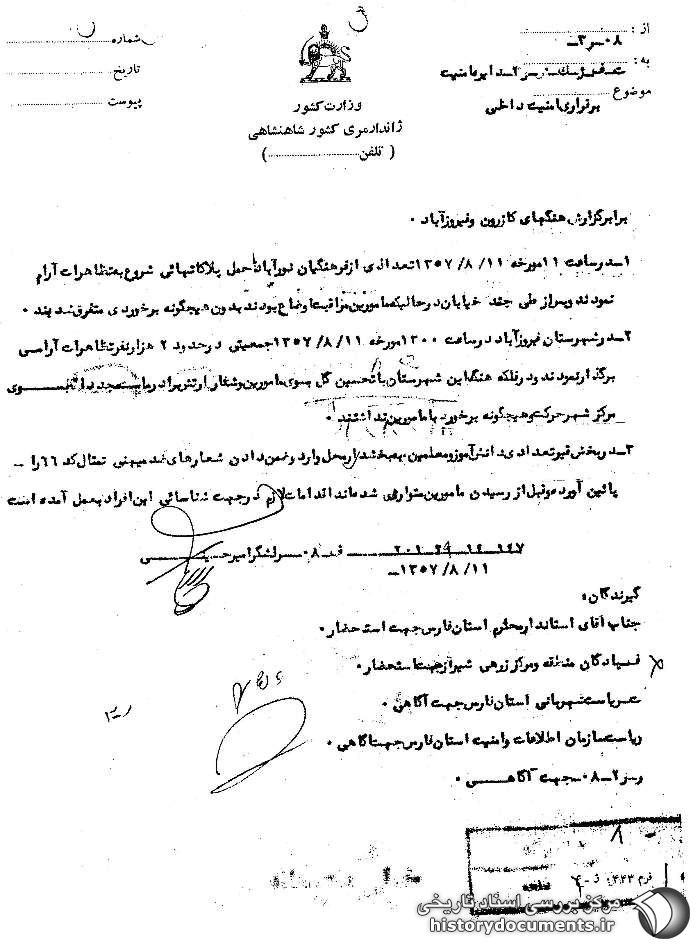 از :
۰۸ـ ر۳ـ
به :
موضوع
برقراری امنیت داخلی
شماره
تاریخ
پیوست
وزارت کشور
ژاندارمری کشور شاهنشاهی
( تلفن ............ )
برابر گزارش هنگهای کازرون و فیروزآباد .
۱ـ در ساعت ۱۱ مورخه ۱۱/ ۸/ ۱۳۵۷ تعدادی از فرهنگیان نورآباد با حمل پلاکاتهائی شروع به تظاهرات آرام
نمودند و پس از طی چند خیابان در حالیکه مامورین مراقبت اوضاع بودند بدون هیچگونه برخوردی متفرق شدند .
۲ـ در شهرستان فیروزآباد در ساعت ۱۳۰۰ مورخه ۱۱/ ۸/ ۱۳۵۷ جمعیتی در حدود ۲ هزار نفر تظاهرات آرامی
برگذار نمودند و در فلکه هنگ این شهرستان با تحسین گل بسوی مامورین و شعار ارتش برادر ماست مجددا بسوی
مرکز شهر حرکت و هیچگونه برخورد با مامورین نداشتند .
۳ـ در بخش قیر تعدادی دانش آموز و معلمین به بخشداری محل وارد و ضمن دادن شعارهای ضد میهنی تمثال کد ۶۶ را ـ
پائین آورده و قبل از رسیدن مامورین متواری شده‌اند اقدامات لازم در جهت شناسائی این افراد بعمل آمده است
۱۴۷ـ ۱۲ـ ۲۴ـ ۲۰۱ـ ف ۰۸ سرلشگر امیرحسینی
۱۱/ ۸/ ۱۳۵۷ـ
گیرندگان :
جناب آقای استاندار محترم استان فارس جهت استحضار .
فرماندگان منطقه و مرکز زرهی شیراز جهت استحضار .
ریاست شهربانی استان فارس جهت آگاهی .
ریاست سازمان اطلاعات و امنیت استان فارس جهت آگاهی .
ر ۲ـ ۰۸ـ جهت آگاهی .
۸
فرم ۴۴۳
مرکز بررسی اسناد تاریخی
historydocuments.ir